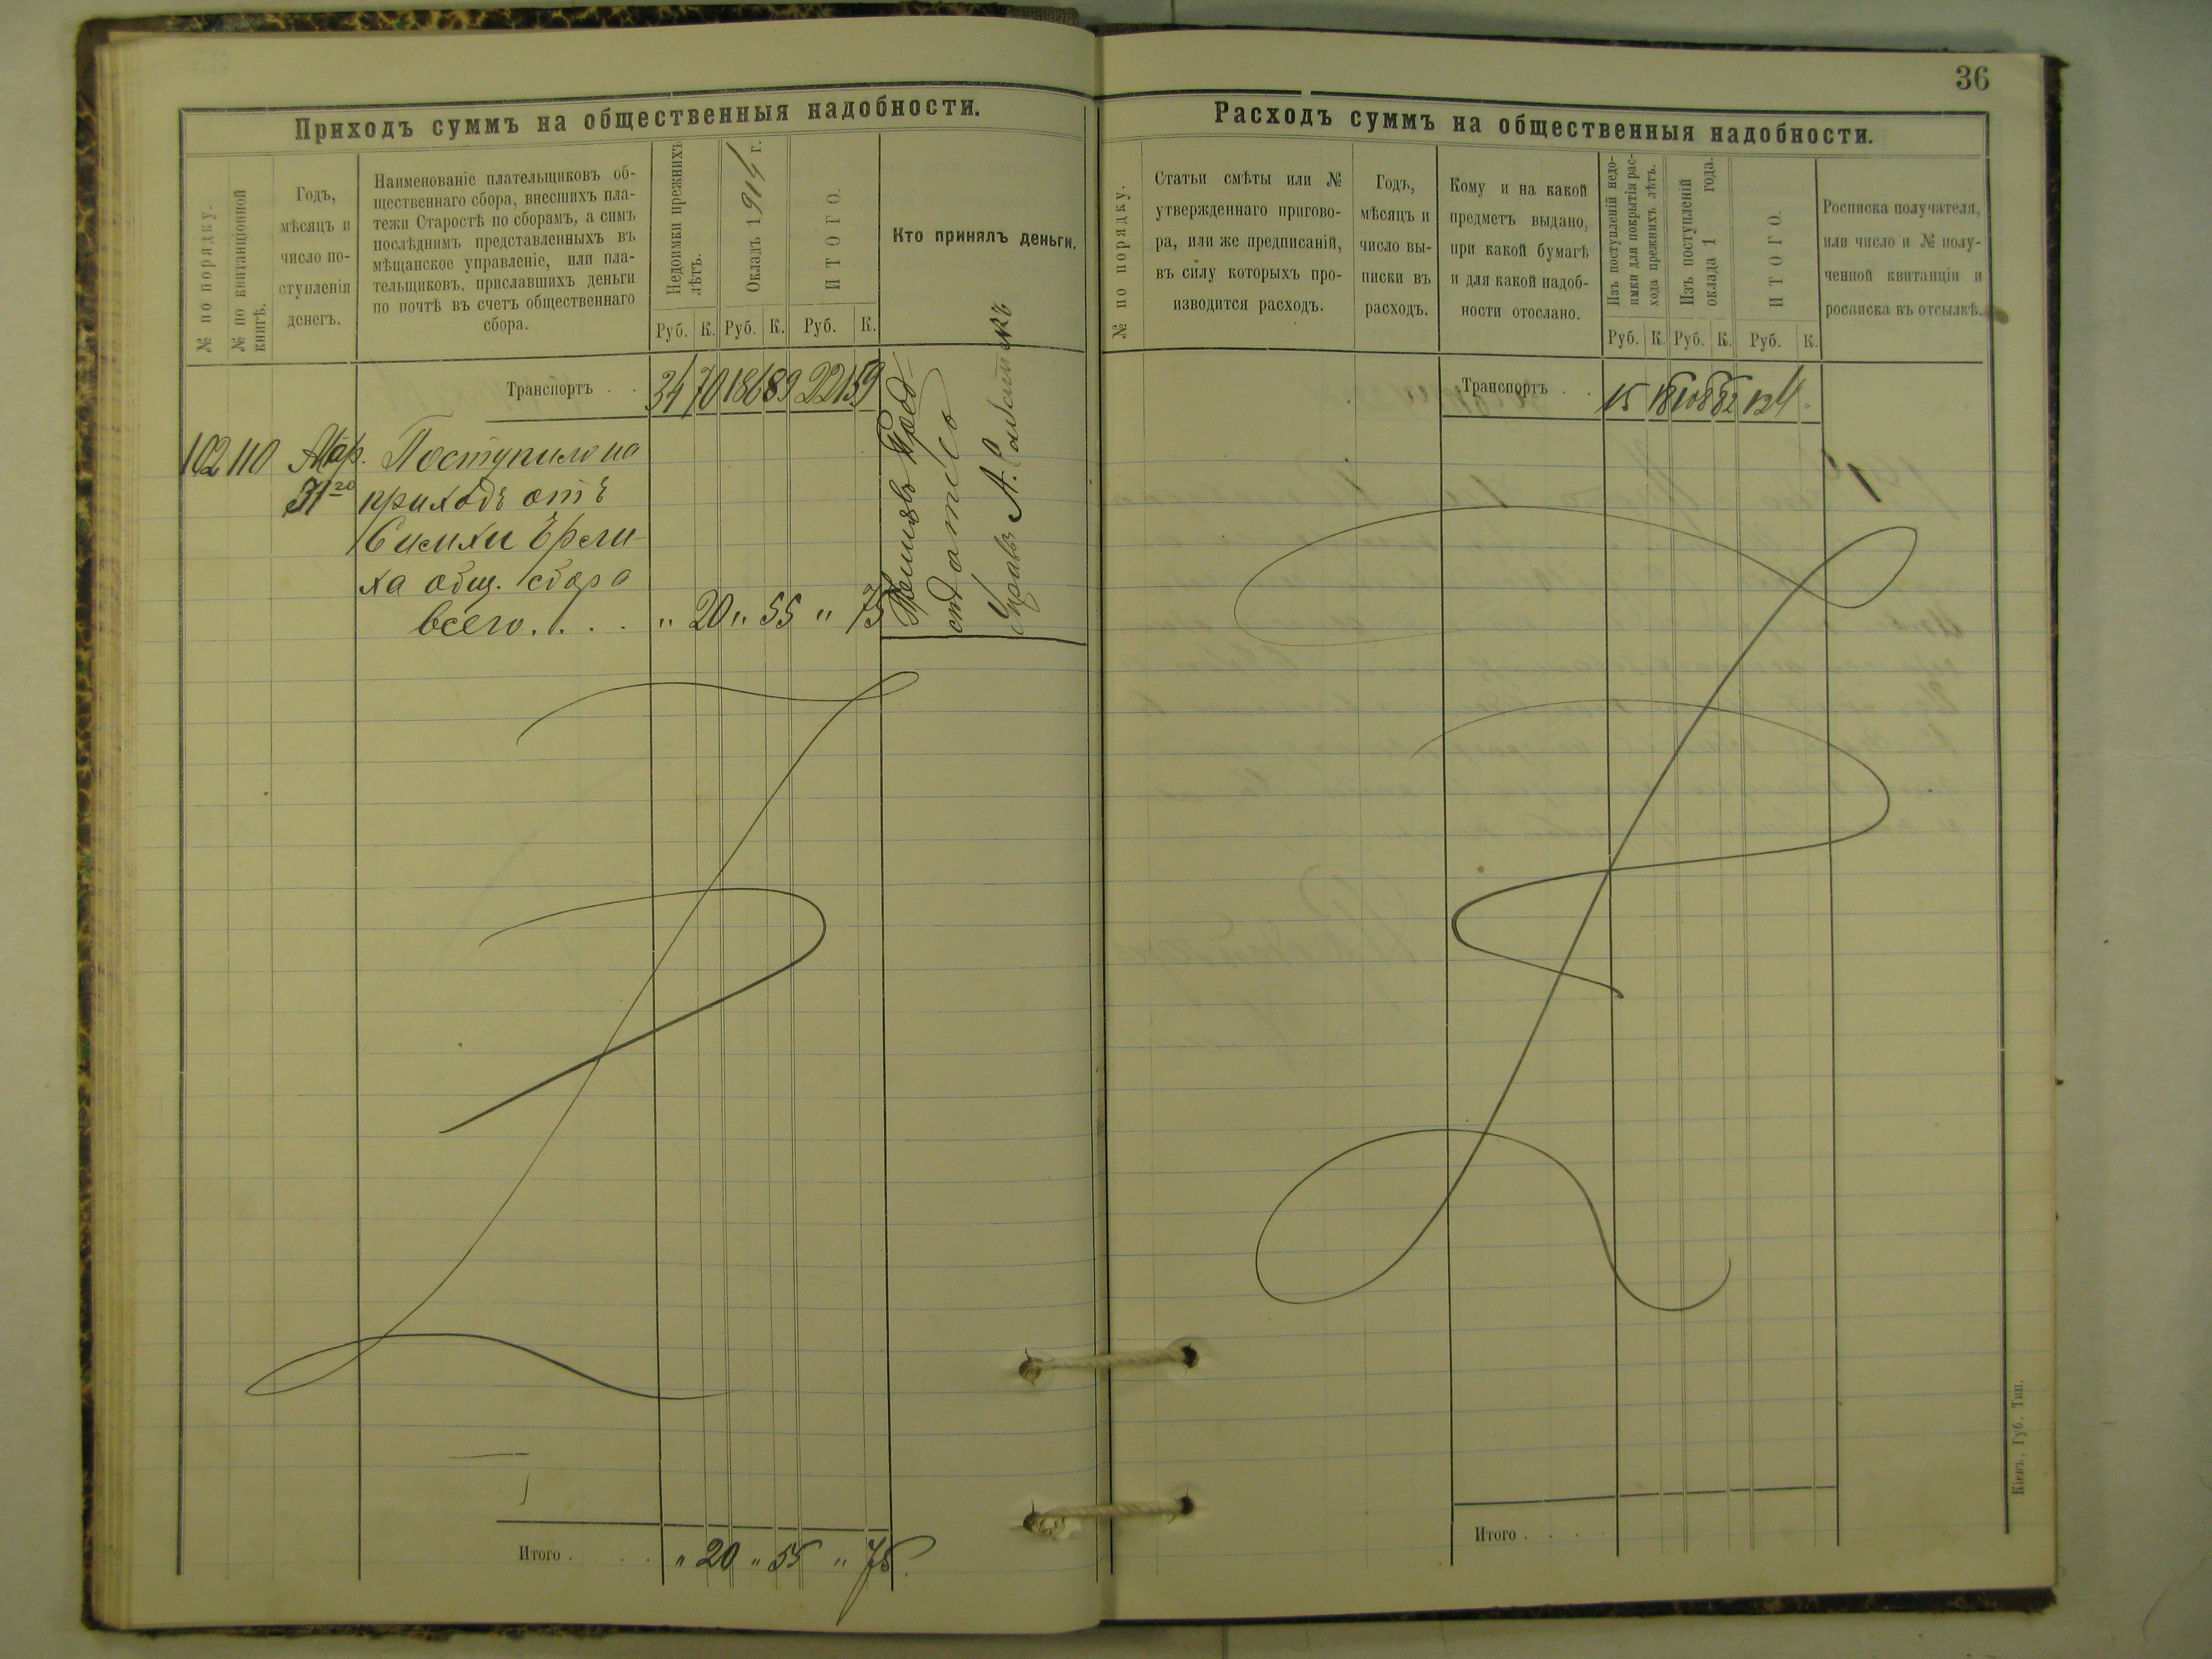 36
Приходъ суммъ на общественныя надобности.
№ по порядку.
№ по квитанціонной
книгѣ.
Годъ,
мѣсяцъ и
число по-
ступленія
денегъ.
Наименованіе плательщиковъ об-
щественнаго сбора, внесшихъ пла-
тежи Старостѣ по сборамъ, а симъ
послѣднимъ представленныхъ въ
мѣщанское управленіе, или пла-
тельщиковъ, приславшихъ деньги
по почтѣ въ счетъ общественнаго
сбора.
Недоимки прежнихъ
лѣтъ.
Окладъ 1914 г.
ИТОГО.
Кто принялъ деньги.
Руб. К. Руб. К. Руб. К.
Транспортъ . . 34 70 186 89 221 59
102 110 Мар. Поступило на
31 20 приходъ отъ
общ. сбора
всего. . . . " 20 " 55 " 75
Итого . . . . " 20 " 55 " 75
Расходъ суммъ на общественныя надобности.
№ по порядку.
Статьи смѣты или №
утвержденнаго пригово-
ра, или же предписаній,
въ силу которыхъ про-
изводится расходъ.
Годъ,
мѣсяцъ и
число вы-
писки въ
расходъ.
Кому и на какой
предметъ выдано,
при какой бумагѣ
и для какой надоб-
ности отослано.
Изъ поступленій недо-
имки для покрытія рас-
хода прежнихъ лѣтъ.
Изъ поступленій
оклада 1 года.
ИТОГО.
Росписка получателя,
или число и № полу-
ченной квитанціи и
росписка въ отсылкѣ.
Руб. К. Руб. К. Руб. К.
Транспортъ . . 15 18 108 82 124 "
Итого . . . .
Кіевъ, Губ. Тип.